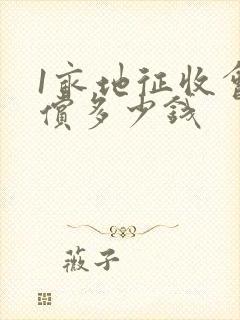 1亩地征收會
償多少錢
薇子